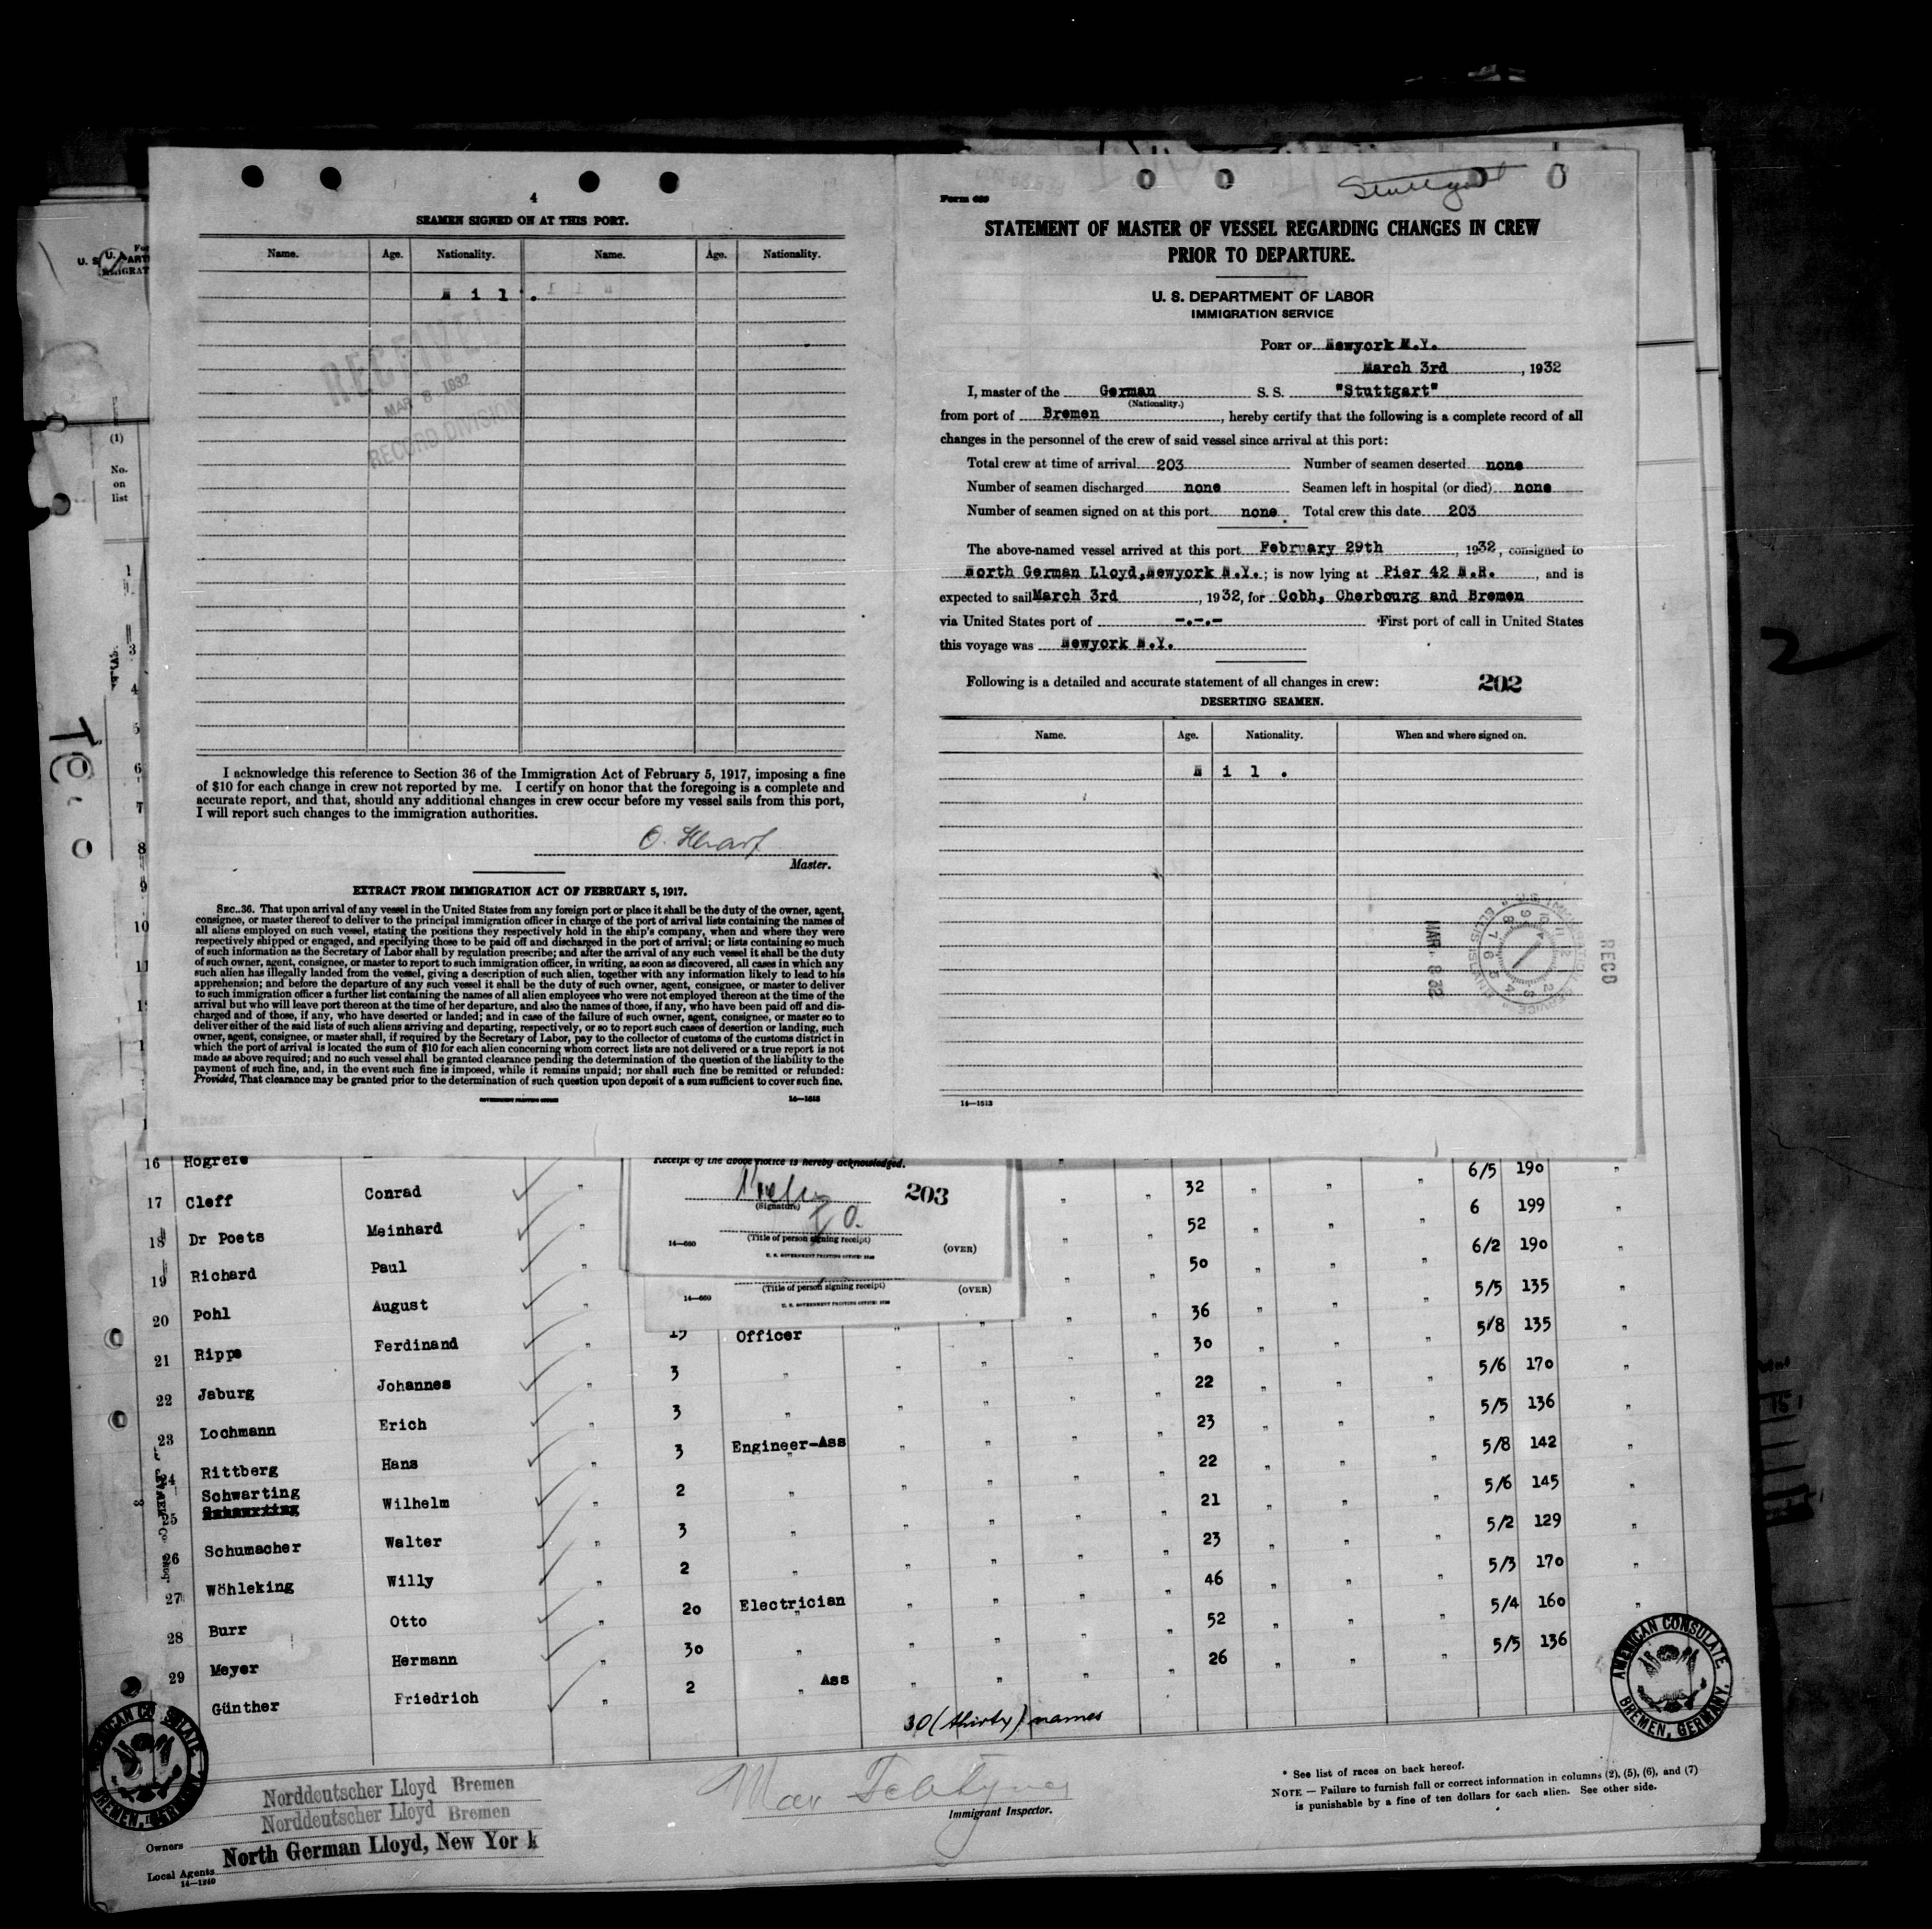 4
SEAMEN SIGNED ON AT THIS PORT.
Name. Age. Nationality. Name. Age. Nationality.
N i l .
RECEIVED
MAR 8 1932
RECORD DIVISION
I acknowledge this reference to Section 36 of the Immigration Act of February 5, 1917, imposing a fine
of $10 for each change in crew not reported by me. I certify on honor that the foregoing is a complete and
accurate report, and that, should any additional changes in crew occur before my vessel sails from this port,
I will report such changes to the immigration authorities.
Master.
EXTRACT FROM IMMIGRATION ACT OF FEBRUARY 5, 1917.
SEC. 36. That upon arrival of any vessel in the United States from any foreign port or place it shall be the duty of the owner, agent,
consignee, or master thereof to deliver to the principal immigration officer in charge of the port of arrival lists containing the names of
all aliens employed on such vessel, stating the positions they respectively hold in the ship's company, when and where they were
respectively shipped or engaged, and specifying those to be paid off and discharged in the port of arrival; or lists containing so much
of such information as the Secretary of Labor shall by regulation prescribe; and after the arrival of any such vessel it shall be the duty
of such owner, agent, consignee, or master to report to such immigration officer, in writing, as soon as discovered, all cases in which any
such alien has illegally landed from the vessel, giving a description of such alien, together with any information likely to lead to his
apprehension; and before the departure of any such vessel it shall be the duty of such owner, agent, consignee, or master to deliver
to such immigration officer a further list containing the names of all alien employees who were not employed thereon at the time of the
arrival but who will leave port thereon at the time of her departure, and also the names of those, if any, who have been paid off and dis-
charged and of those, if any, who have deserted or landed; and in case of the failure of such owner, agent, consignee, or master so to
deliver either of the said lists of such aliens arriving and departing, respectively, or so to report such cases of desertion or landing, such
owner, agent, consignee, or master shall, if required by the Secretary of Labor, pay to the collector of customs of the customs district in
which the port of arrival is located the sum of $10 for each alien concerning whom correct lists are not delivered or a true report is not
made as above required; and no such vessel shall be granted clearance pending the determination of the question of the liability to the
payment of such fine, and, in the event such fine is imposed, while it remains unpaid; nor shall such fine be remitted or refunded:
Provided, That clearance may be granted prior to the determination of such question upon deposit of a sum sufficient to cover such fine.
GOVERNMENT PRINTING OFFICE 14—1513
Stuttgart
Form 689
STATEMENT OF MASTER OF VESSEL REGARDING CHANGES IN CREW
PRIOR TO DEPARTURE.
U. S. DEPARTMENT OF LABOR
IMMIGRATION SERVICE
PORT OF Newyork N.Y.
March 3rd, 1932
I, master of the German S. S. "Stuttgart"
(Nationality.)
from port of Bremen, hereby certify that the following is a complete record of all
changes in the personnel of the crew of said vessel since arrival at this port:
Total crew at time of arrival 203 Number of seamen deserted none
Number of seamen discharged none Seamen left in hospital (or died) none
Number of seamen signed on at this port none Total crew this date 203
The above-named vessel arrived at this port February 29th, 1932, consigned to
North German Lloyd, Newyork N.Y.; is now lying at Pier 42 N.R., and is
expected to sail March 3rd, 1932, for Cobh, Cherbourg and Bremen
via United States port of -.-.- First port of call in United States
this voyage was Newyork N.Y.
Following is a detailed and accurate statement of all changes in crew: 202
DESERTING SEAMEN.
Name. Age. Nationality. When and where signed on.
N i l .
REC'D
MAR 8 32
14—1513
(1)
No.
on
list
Receipt of the above notice is hereby acknowledged.
203
(Signature)
(Title of person signing receipt)
14—660 (OVER)
U. S. GOVERNMENT PRINTING OFFICE
(Title of person signing receipt)
14—660 (OVER)
U. S. GOVERNMENT PRINTING OFFICE
16 Hogrefe 6/5 190 "
17 Cleff Conrad " " " 32 " " " 6 199 "
18 Dr Poets Meinhard " " " 52 " " " 6/2 190 "
19 Richard Paul " " " 50 " " " 5/5 135 "
20 Pohl August " 15 Officer " " " " 36 " " " 5/8 135 "
21 Ripps Ferdinand " 3 " " " " " 30 " " " 5/6 170 "
22 Jaburg Johannes " 3 " " " " " 22 " " " 5/5 136 "
23 Lochmann Erich " 3 Engineer-Ass " " " " 23 " " " 5/8 142 "
24 Rittberg Hans " 2 " " " " " 22 " " " 5/6 145 "
25 Schwarting Wilhelm " 3 " " " " " 21 " " " 5/2 129 "
26 Schumacher Walter " 2 " " " " " 23 " " " 5/3 170 "
27 Wöhleking Willy " 20 Electrician " " " " 46 " " " 5/4 160 "
28 Burr Otto " 30 " " " " " 52 " " " 5/5 136
29 Meyer Hermann " 2 " Ass " " " " 26 " " "
Günther Friedrich "
30 (thirty) names
AMERICAN CONSULATE
BREMEN, GERMANY.
AMERICAN CONSULATE.
BREMEN, GERMANY.
Norddeutscher Lloyd Bremen
Norddeutscher Lloyd Bremen
Owners
North German Lloyd, New York
Local Agents
14—1240
Immigrant Inspector.
* See list of races on back hereof.
NOTE — Failure to furnish full or correct information in columns (2), (5), (6), and (7)
is punishable by a fine of ten dollars for each alien. See other side.